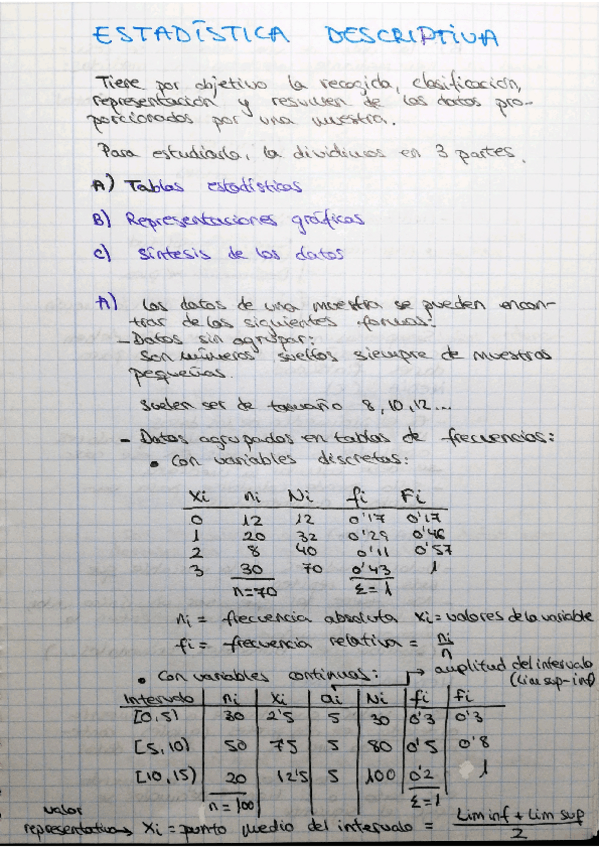 ESTADÍSTICA DESCRIPTIVA
Tiene por objetivo la recogida, clasificación,
representación y resumen de los datos pro-
porcionados por una muestra.
Para estudiarla, la dividimos en 3 partes.
A) Tablas estadísticas
B) Representaciones gráficas
C) Síntesis de los datos
A) Los datos de una muestra se pueden encon-
trar de las siguientes formas:
- Datos sin agrupar:
Son números sueltos siempre de muestras
pequeñas.
Suelen ser de tamaño 8, 10, 12...
- Datos agrupados en tablas de frecuencias:
• Con variables discretas:
xi ni Ni fi Fi
0 12 12 0'17 0'17
1 20 32 0'29 0'46
2 8 40 0'11 0'57
3 30 70 0'43 1
n=70 Σ=1
ni = frecuencia absoluta xi = valores de la variable
fi = frecuencia relativa = ni/n
• Con variables continuas: → amplitud del intervalo
(Lim sup - inf)
Intervalo ni xi ai Ni fi Fi
[0,5) 30 2'5 5 30 0'3 0'3
[5,10) 50 7'5 5 80 0'5 0'8
[10,15) 20 12'5 5 100 0'2 1
n=100 Σ=1
valor
representativo → xi = punto medio del intervalo = Lim inf + Lim sup
2